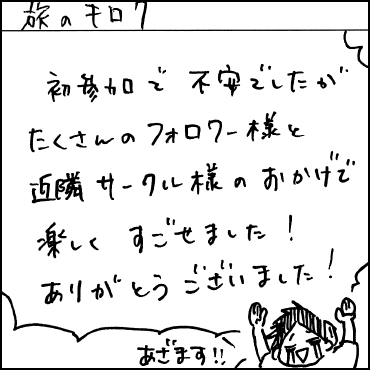 旅のキロク
初参加で 不安でしたが
たくさんのフォロワー様と
近隣サークル様のおかげで
楽しく すごせました!
ありがとうございました!
あざます!!